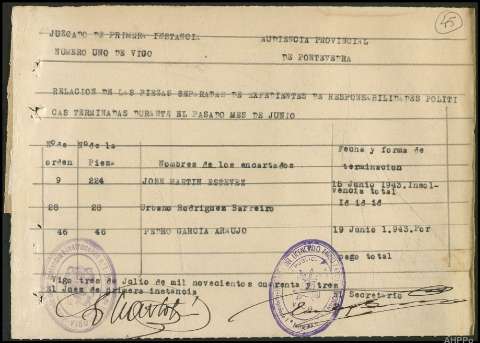 45
JUZGADO DE PRIMERA INSTANCIA
AUDIENCIA PROVINCIAL
NUMERO UNO DE VIGO
DE PONTEVEDRA
RELACION DE LAS PIEZAS SEPARADAS DE EXPEDIENTES DE RESPONSABILIDADES POLITI
CAS TERMINADAS DURANTE EL PASADO MES DE JUNIO
Nºde Nºde la Fecha y forma de
orden Pieza Nombres de los encartados terminacion
9 224 JOSE MARTIN ESTEVEZ 15 Junio 1943.Insol-
vencia total
28 28 Rodriguez Barreiro Id id id
46 46 PEDRO GARCIA ARAUJO 19 Junio 1.943.Por
pago total
Vigo tres de Julio de mil novecientos cuarenta y tres
El Juez de primera instancia El Secretario
VIGO
AHPPo